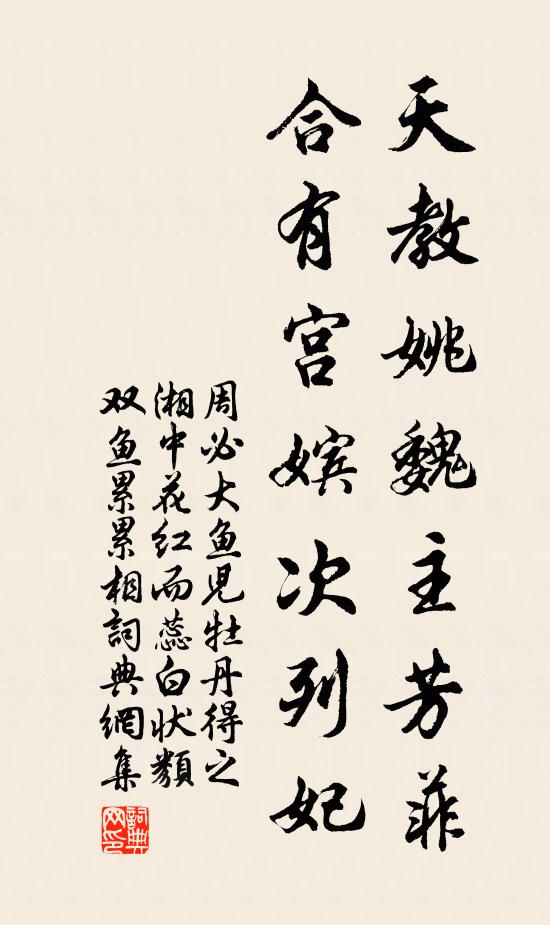 天教姚魏主芳菲
合有宫嫔次列妃
周必大鱼儿牡丹得之
湘中花红而蕊白状类
双鱼累累相詞典網集
詞典
网印